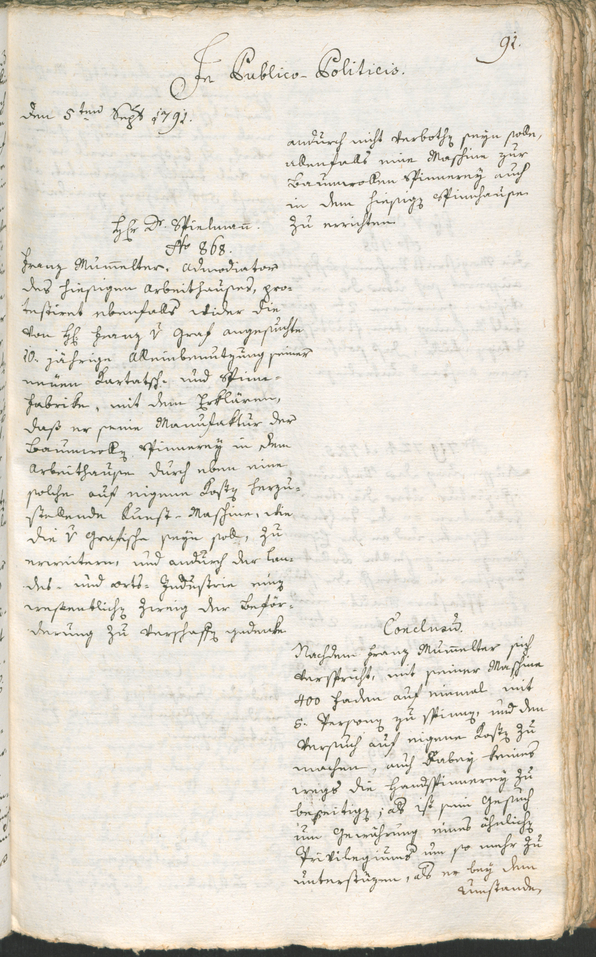 91.
In Publico-Politicis.
den 5ten Septr 1791.
H. Dr. Spielmann.
No 868.
Franz Mumelter, Admodiator
des hiesigen Arbeithauses, pro-
testiret ebenfalls wider die
von H. Franz v Graf angesuchte
10. jährige Alleinbenutzung seiner
neuen Kartatsch- und Spinn-
fabrike, mit dem Erklären,
daß er seine Manufaktur der
Baumwolln Spinnerey in dem
Arbeithause durch eben eine
solche auf eigene Kostn herzu-
stellende Kunst-Maschine, wie
die v Grafische seyn soll, zu
erweitern, und andurch der Lan-
des- und Orts-Industrie einn
wesentlichn Zweig der Beför-
derung zu verschaffn gedenke
andurch nicht verbothn seyn solle,
allenfalls eine Maschine zur
Baumwollen Spinnerey auch
in dem hiesign Spinnhause
zu errichten.
Conclusum.
Nachdem Franz Mumelter sich
verspricht, mit seiner Maschine
400 Faden auf einmal mit
5. Personn zu spinnn, und den
Versuch auf eigene Kostn zu
machen, auch dabey keines
wegs die Handspinnerey zu
beseitign; als ist sein Gesuch
um Gewährung eines ähnlichn
Privilegiums um so mehr zu
unterstützen, als er bey dem
Umstande,